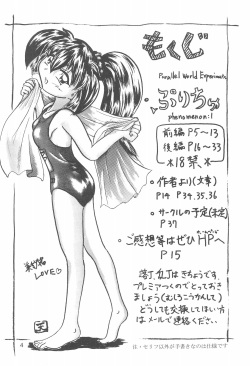 もくじ
Parallel World Experiments
ぷりちゅ
phenomenon:1
前編 P5～13
後編 P16～33
*18禁*
・作者より(文章)
P14 P34.35.36
・サークルの予定(未定)
P37
・ご感想等はぜひHPへ
P15
プレミアつくのでとっておき
ましょう(むしろこうかんして)
どうしても交換してほしい方
はメールで連絡ください。
LOVE♡
4
注・セリフ以外が手書きなのは仕様です